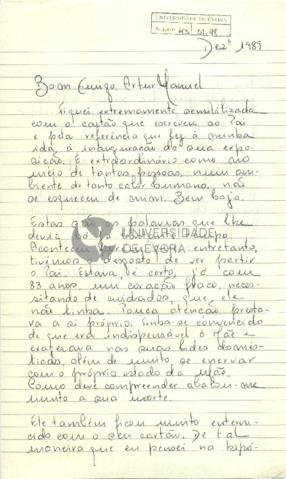 UNIVERSIDADE DE ÉVORA
Dezº 1989
Bom Amigo Artur Manuel
Fiquei extremamente sensibilizada
com o cartão que escreveu ao Pai
e pela referência que fez à minha
ida à inauguração da sua expo-
sição. É extraordinário como no
meio de tantas pessoas, num am-
biente de tanto calor humano, não
se esqueceu de mim. Bem haja.
Estas são as palavras que lhe
devia
UNIVERSIDADE
DE ÉVORA
entretanto,
tivemos o desgosto de ver partir
o Pai. Estava, é certo, já com
83 anos, um coração fraco, neces-
sitando de cuidados, que, ele
não tinha. Pouca atenção presta-
va a si próprio. Tinha-se convencido
de que era indispensável à Mãe e
exagerava nas suas lides domés-
ticas, além de muito se enervar
com o próprio estado da Mãe.
Como deve compreender abalou-me
muito a sua morte.
Ele também ficou muito enterne-
cido com o seu cartão. De tal
maneira que eu pensei na hipó-